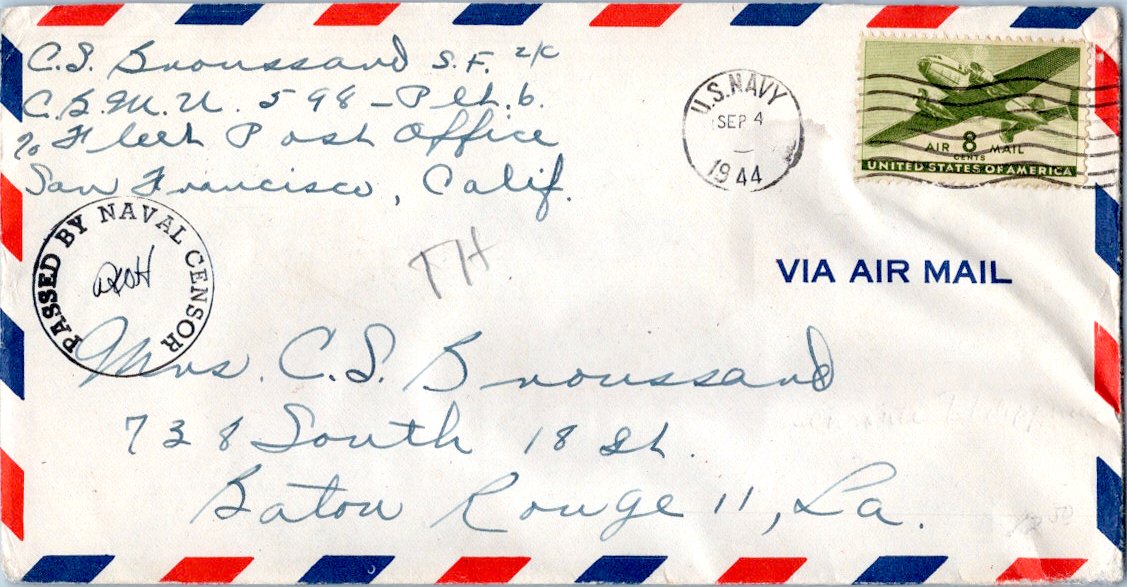 C.S. Broussard S.F. 2/c
C.B.M.U. 598 - Plt. 6.
c/o Fleet Post Office
San Francisco, Calif.
U.S. NAVY
SEP 4
1944
AIR 8 MAIL
CENTS
UNITED STATES OF AMERICA
PASSED BY NAVAL CENSOR
TH
VIA AIR MAIL
Mrs. C.S. Broussard
738 South 18 St.
Baton Rouge 11, La.